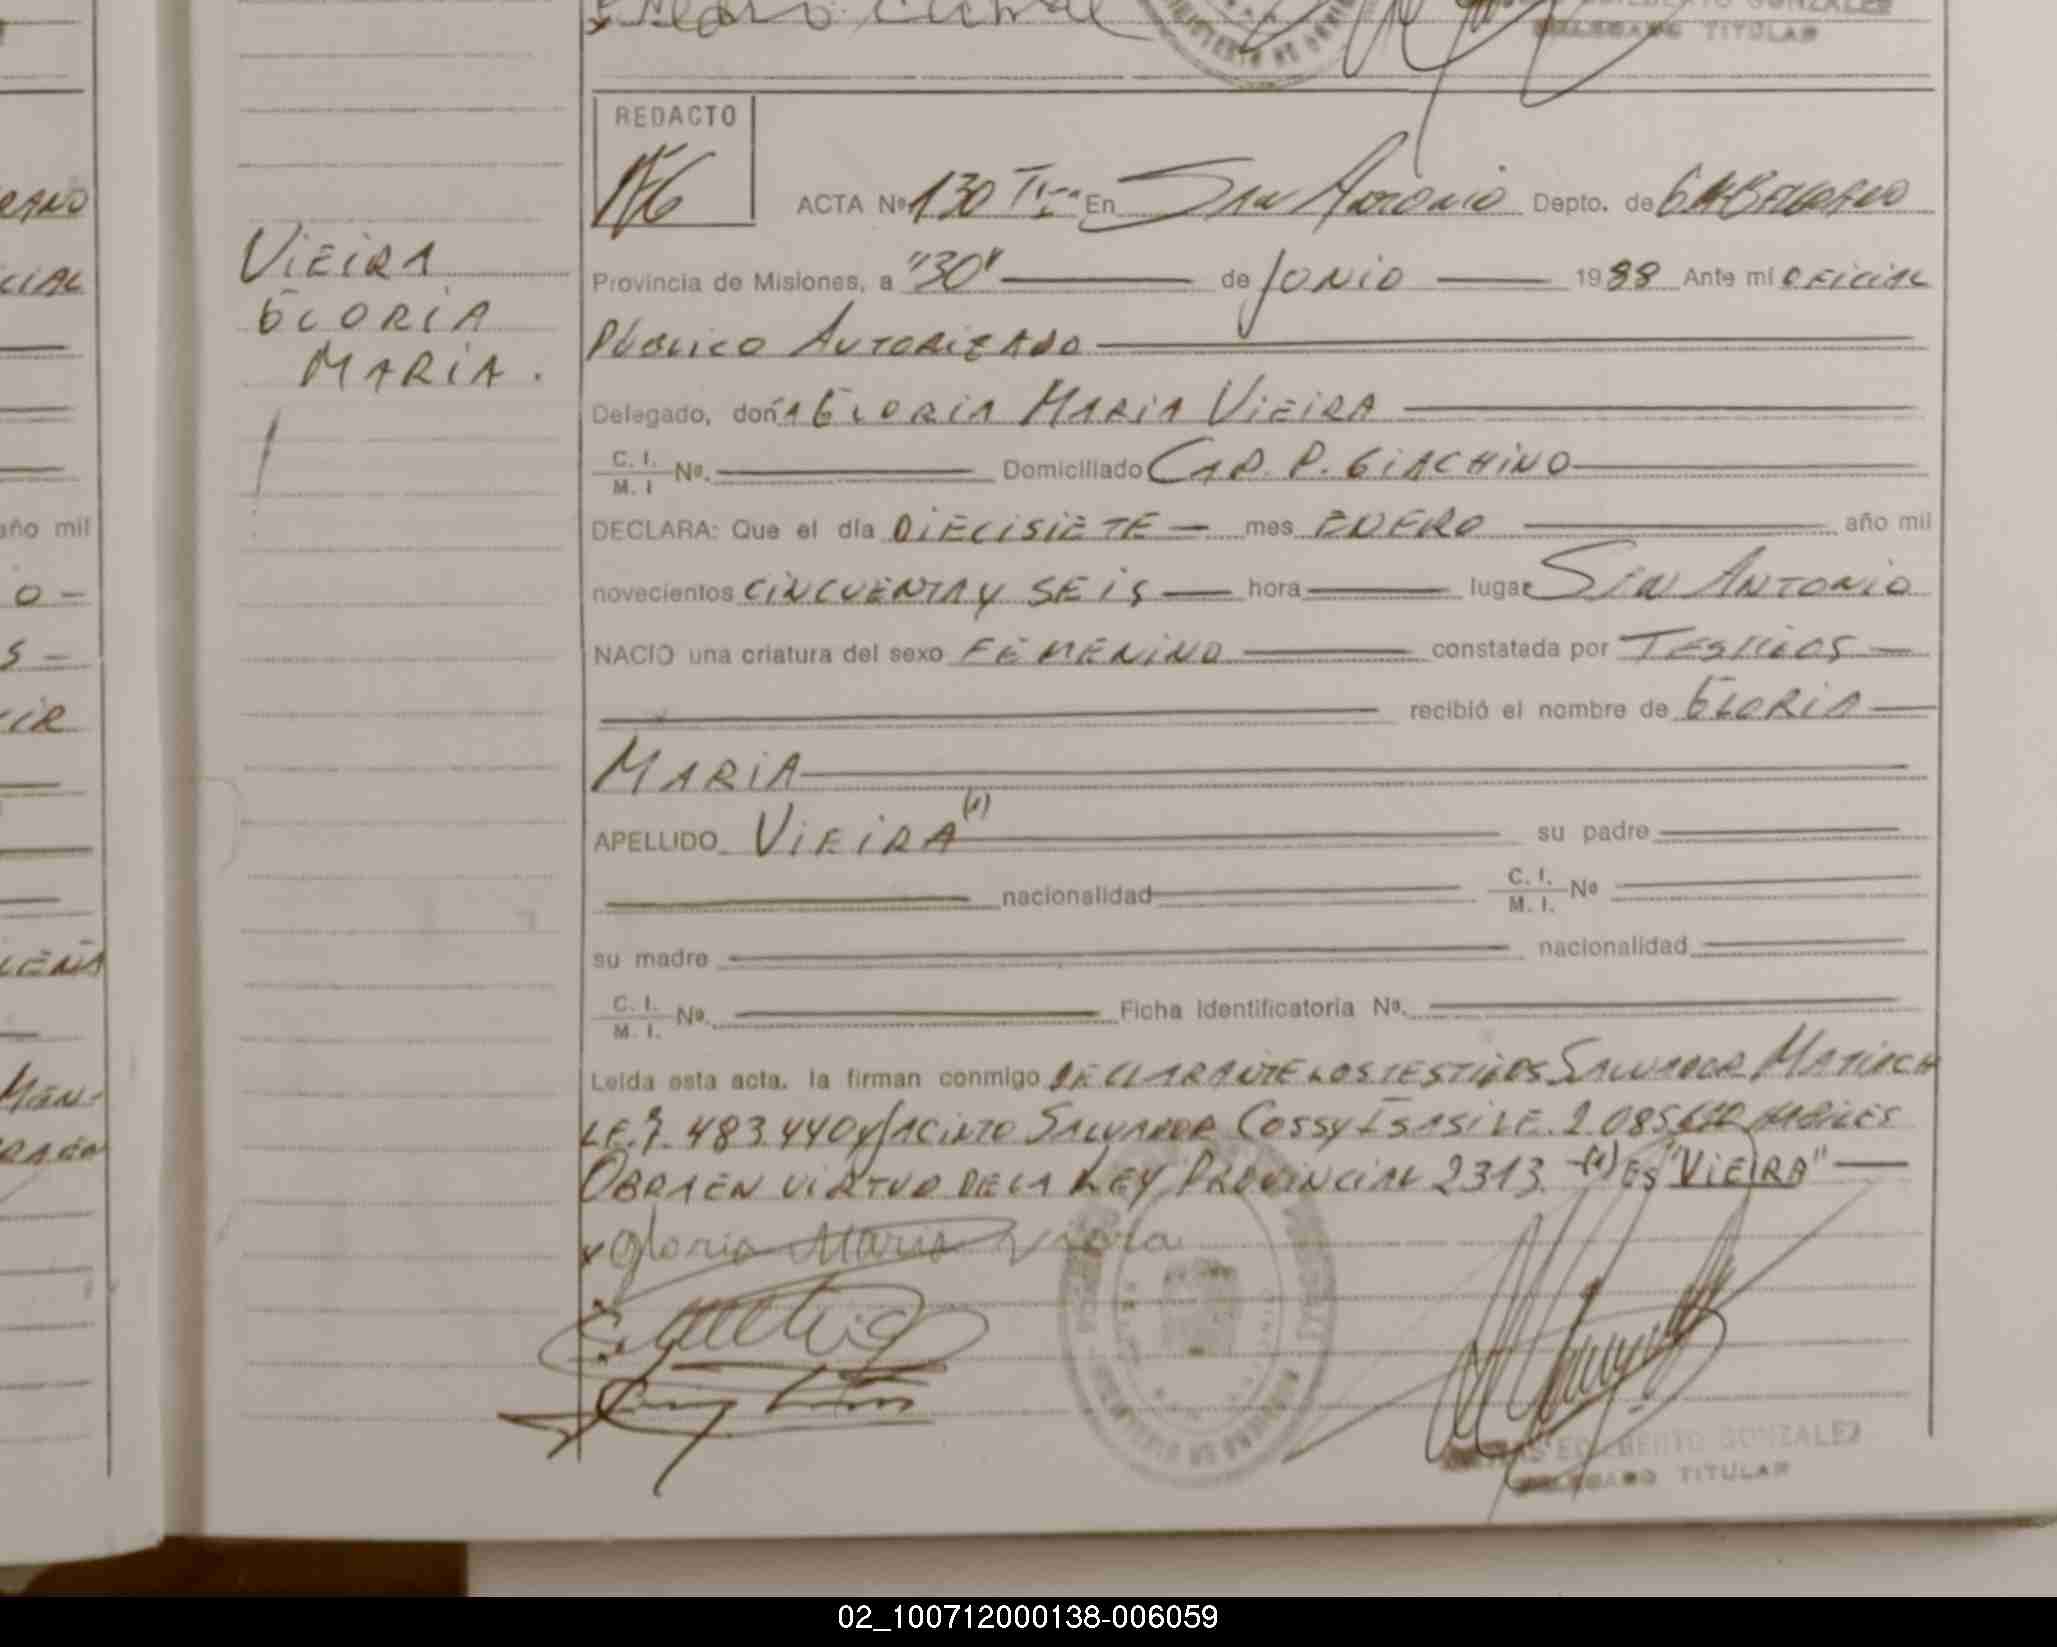 GONZALEZ
DELEGADO TITULAR
REDACTO
ACTA Nº 130 En San Antonio Depto. de G. M. BELGRANO
VIEIRA
GLORIA
MARIA.
Provincia de Misiones, a "30" de JUNIO 1988 Ante mí OFICIAL
PÚBLICO AUTORIZADO
Delegado, doña GLORIA MARIA VIEIRA
C. I. M. I Nº. Domiciliado CAP. P. GIACHINO
DECLARA: Que el día DIECISIETE mes ENERO año mil
novecientos CINCUENTA Y SEIS hora lugar SAN ANTONIO
NACIO una criatura del sexo FEMENINO constatada por TESTIGOS
recibió el nombre de GLORIA
MARIA
APELLIDO VIEIRA (1) su padre
nacionalidad C. I. M. I. Nº
su madre nacionalidad
C. I. M. I. Nº. Ficha Identificatoria Nº.
Leída esta acta, la firman conmigo DECLARANTE LOS TESTIGOS SALVADOR
LE. 7.483.440 y JACINTO SALVADOR COSSY ISASI LE. 2.085. HABILES
OBRA EN VIRTUD DE LA LEY PROVINCIAL 2313. -(1) ES "VIEIRA"
x Gloria Maria
GONZALEZ
DELEGADO TITULAR
02_100712000138-006059